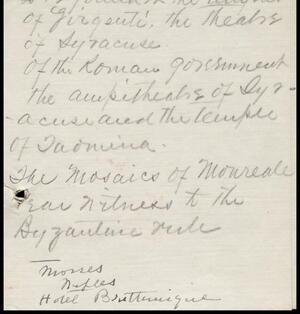 of Girgenti, the theatre
of Syracuse
Of the Roman government
the ampitheatre of Syr-
acuse and the temple
of Taomina.
The Mosaics of Monreale
bear witness to the
Byzantine rule
Naples
Hotel Brittanique